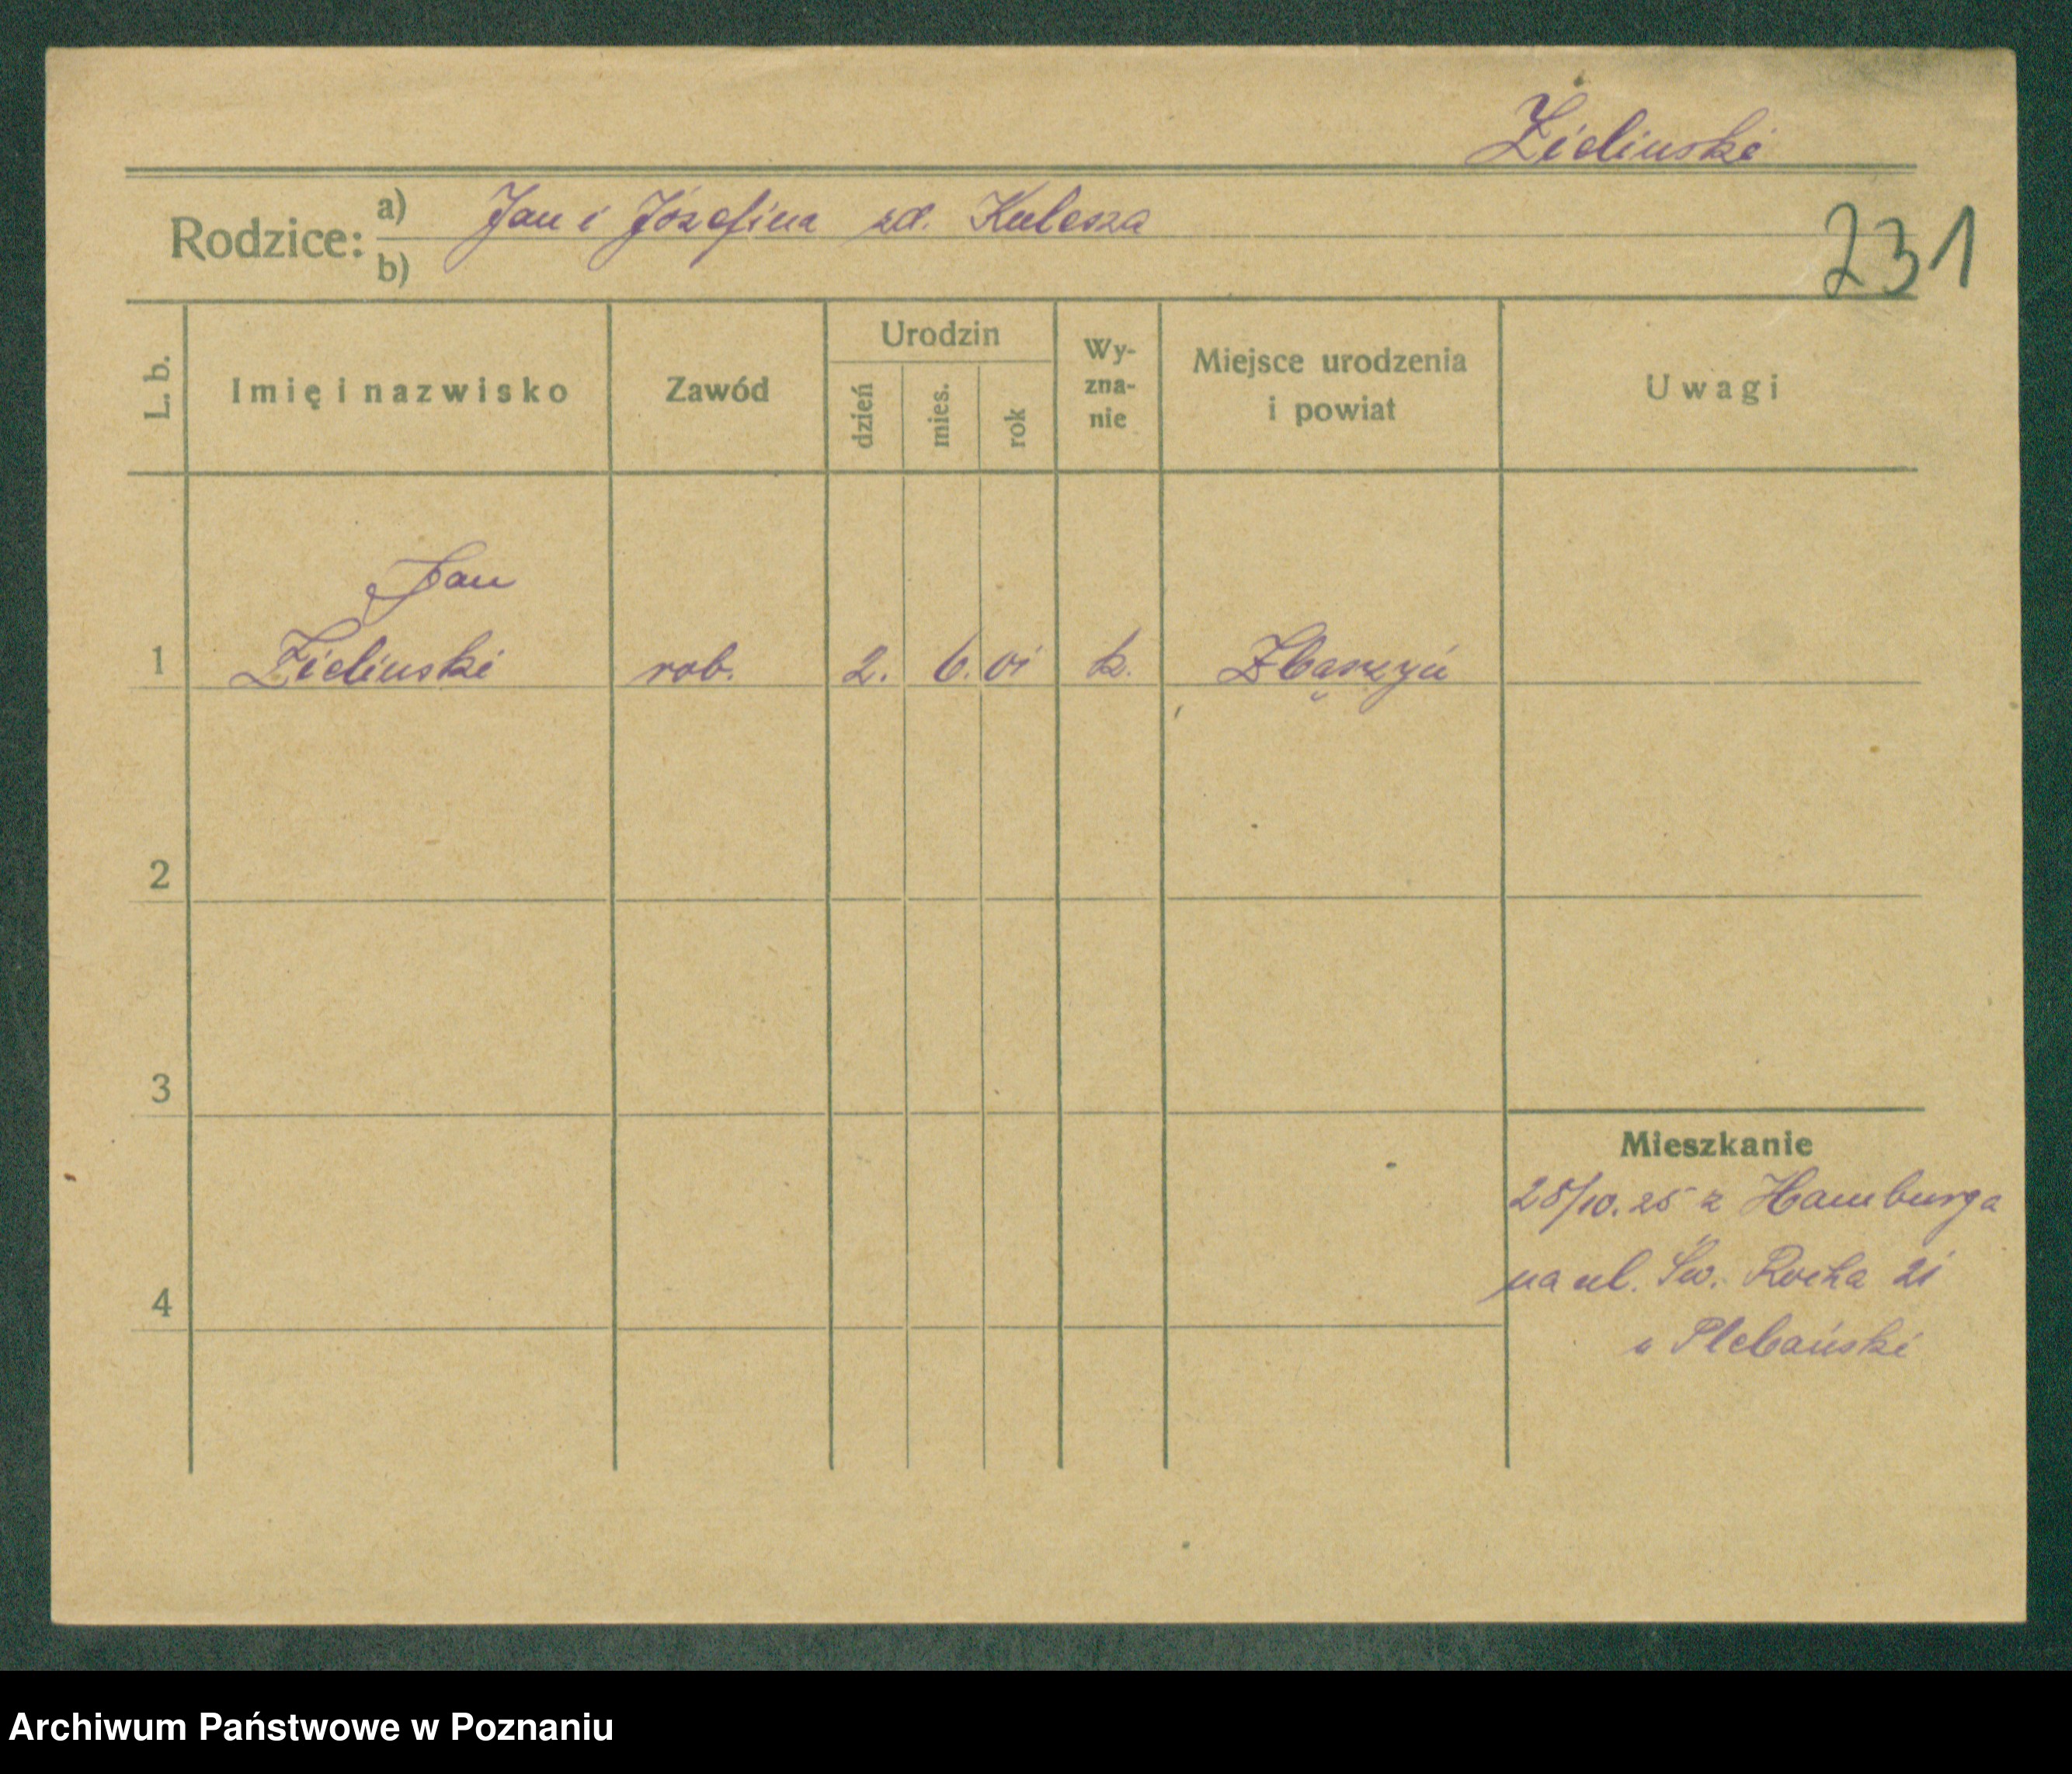 Zieliński
Rodzice:
a) Jan i Józefina zd. Kulesza
b)
231
L. b.
Imię i nazwisko
Zawód
Urodzin
dzień
mies.
rok
Wy-
zna-
nie
Miejsce urodzenia
i powiat
Uwagi
Jan
1 Zieliński rob. 2. 6. 01 k. Zbąszyń
2
3
4
Mieszkanie
28/10. 25 z Hamburga
na ul. Św. Rocha 21
u Plebański
Archiwum Państwowe w Poznaniu